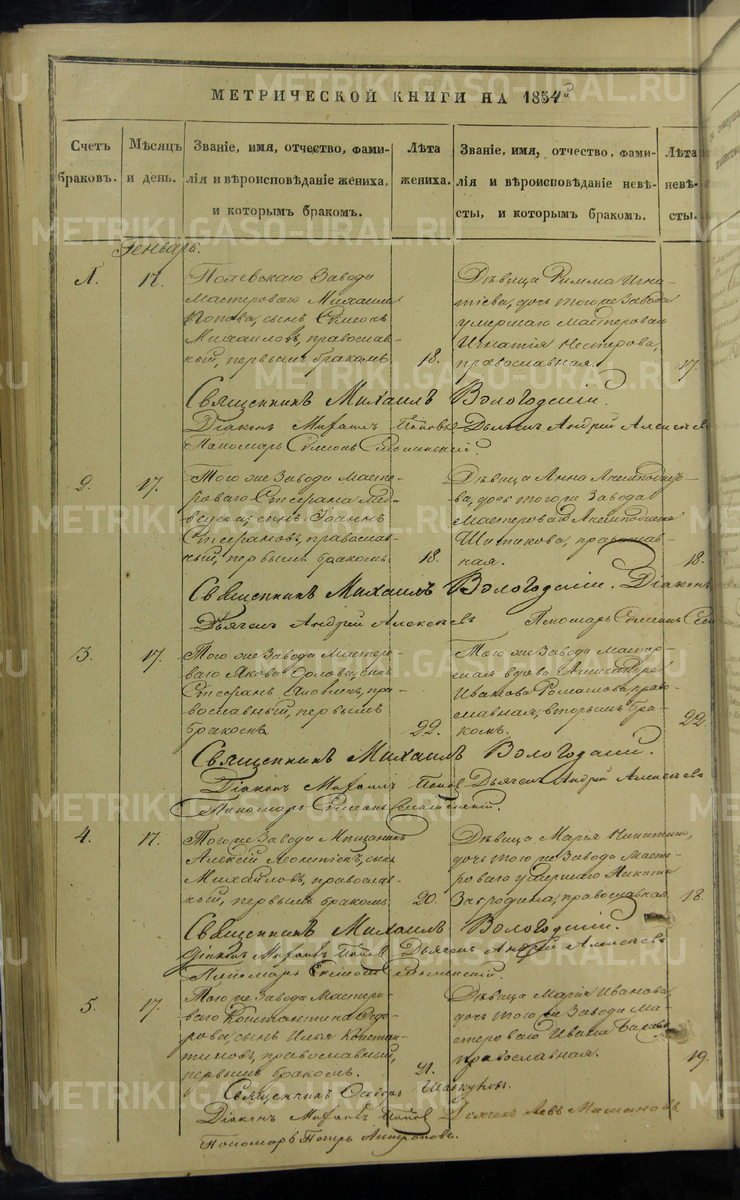 МЕТРИЧЕСКОЙ КНИГИ НА 1854й
Счетъ браковъ.
Мѣсяцъ и день.
Званіе, имя, отчество, фами-
лія и вѣроисповѣданіе жениха,
и которымъ бракомъ.
Лѣта жениха.
Званіе, имя, отчество, фами-
лія и вѣроисповѣданіе невѣ-
сты, и которымъ бракомъ.
Лѣта невѣ-
сты.
Генварь.
1.
17.
Полевскаго Завода
Мастероваго Михаила
Попова, сынъ Симеонъ
Михайловъ, православ-
ный, первымъ бракомъ.
18.
Дѣвица Римма Игна-
тіева, дочь того же Завода
умершаго мастероваго
Игнатія Нестерова,
православная.
17.
Священникъ Михаилъ Вологодскій.
Діаконъ Михаилъ Поповъ Дьячекъ Андрей Алексѣевъ
Пономарь Симеонъ
2.
17.
Того же Завода Масте-
роваго Стефана
сынъ Іоаннъ
Стефановъ, православ-
ный, первымъ бракомъ.
18.
Дѣвица Анна
дочь того же Завода
Мастероваго
Шитикова, православ-
ная.
18.
Священникъ Михаилъ Вологодскій. Діаконъ
Дьячекъ Андрей Алексѣевъ Пономарь Симеонъ
3.
17.
Того же Завода Мастеро-
ваго Якова Орлова, сынъ
Стефанъ Яковлевъ, пра-
вославный, первымъ
бракомъ.
22.
Того же Завода Мастер-
ская вдова Александра
Иванова Ромашова, право-
славная, вторымъ бра-
комъ.
22.
Священникъ Михаилъ Вологодскій.
Діаконъ Михаилъ Поповъ Дьячекъ Андрей Алексѣевъ
Пономарь Симеонъ
4.
17.
Того же Завода Мѣщанинъ
Алексѣй сынъ
Михайловъ, православ-
ный, первымъ бракомъ.
20.
Дѣвица Марія Никитина,
дочь того же Завода Масте-
роваго умершаго Никиты
православная.
18.
Священникъ Михаилъ Вологодскій.
Діаконъ Михаилъ Поповъ Дьячекъ Андрей Алексѣевъ
Пономарь Симеонъ
5.
17.
Того же Завода Мастеро-
ваго Константина Федо-
рова, сынъ Илья Констан-
тиновъ, православный,
первымъ бракомъ.
21.
Дѣвица Марія Иванова,
дочь того же Завода Ма-
стероваго Ивана
православная.
19.
Священникъ Шишкинъ.
Діаконъ Михаилъ Поповъ Дьячекъ Левъ
Пономарь Петръ Антроповъ.
METRIKI.GASO-URAL.RU